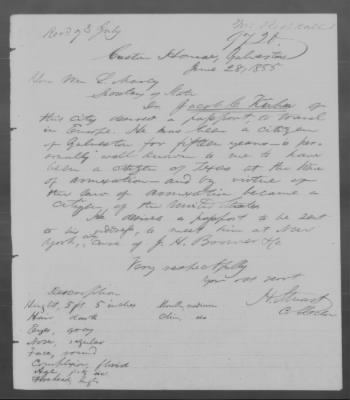 Recd 3 July
9728.
Custom House, Galveston
June 28, 1855
Hon Wm L. Marcy
Secretary of State
Dr. Jacob C. of
this city desires a passport, to travel
in Europe. He has been a citizen
of Galveston for fifteen years is per-
sonally well known to me to have
been a citizen of Texas at the time
of annexation and by virtue of
the law of annexation became a
citizen of the United States
He desires a passport to be sent
to his address, to meet him at New
York, care of J. H. Brower & Co.
Very respectfully
your obt servt
H. Stuart
Description
Height, 5 ft 5 inches
Mouth, medium
Hair dark
Chin, do
Eyes, gray
Nose, regular
Face, round
Complexion, florid
Age,
Forehead, high